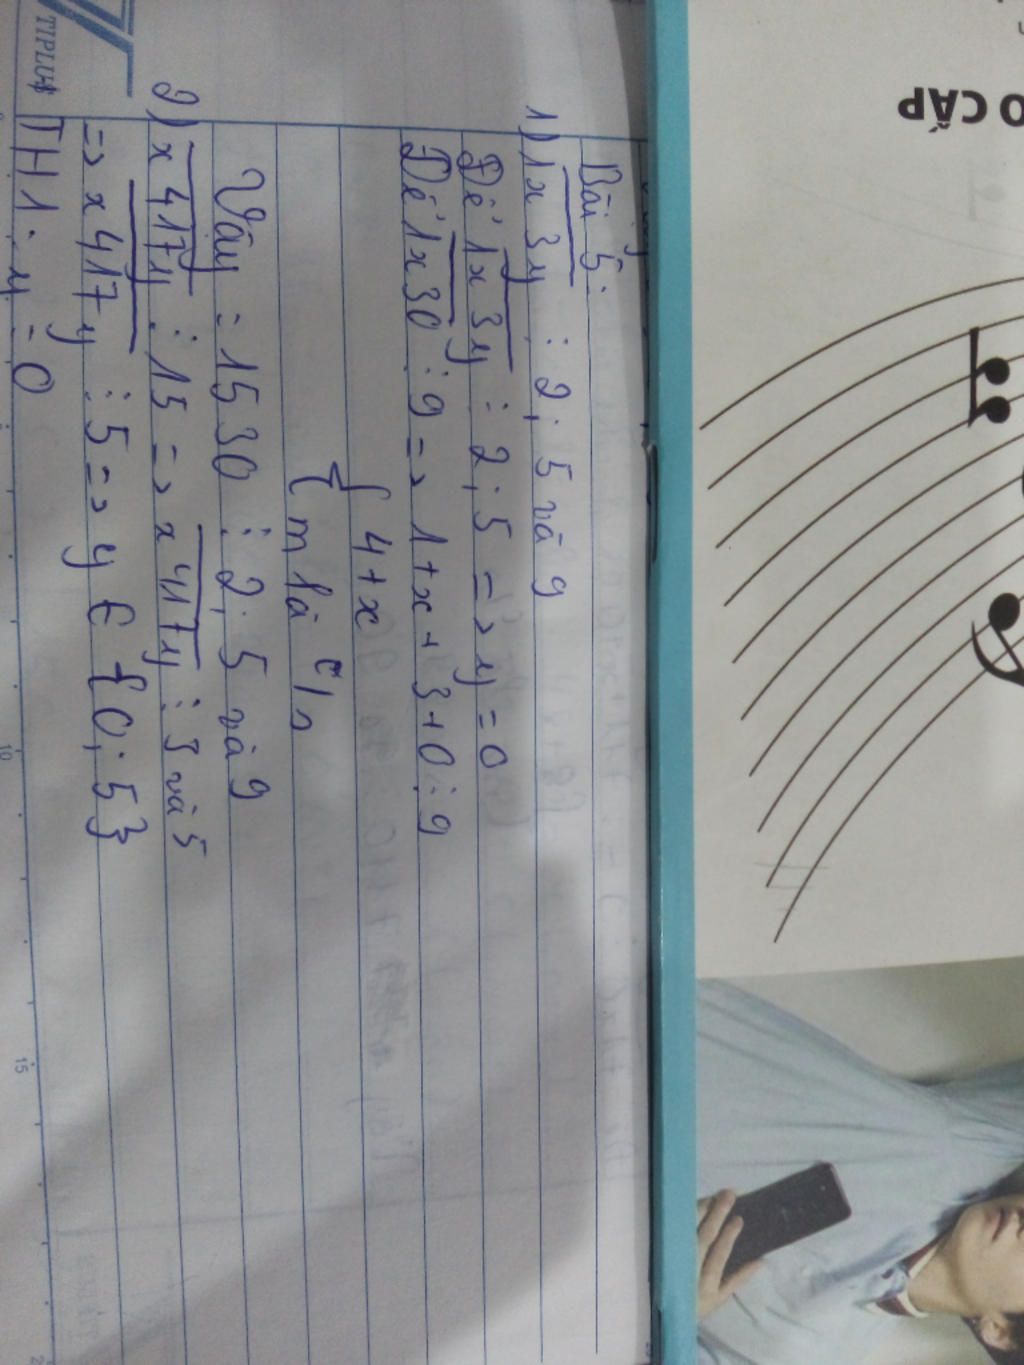 O CẤP
Bài 5:
1) 1x3y ⋮ 2; 5 và 9
Để 1x3y ⋮ 2; 5 => y = 0
Để 1x30 ⋮ 9 => 1+x+3+0 ⋮ 9
{ 4+x
{ m là c/s
Vậy = 1530 ⋮ 2; 5 và 9
2) x417y ⋮ 15 => x417y ⋮ 3 và 5
=> x417y ⋮ 5 => y € {0; 5}
TH1: y = 0
TIPLUS
10
15